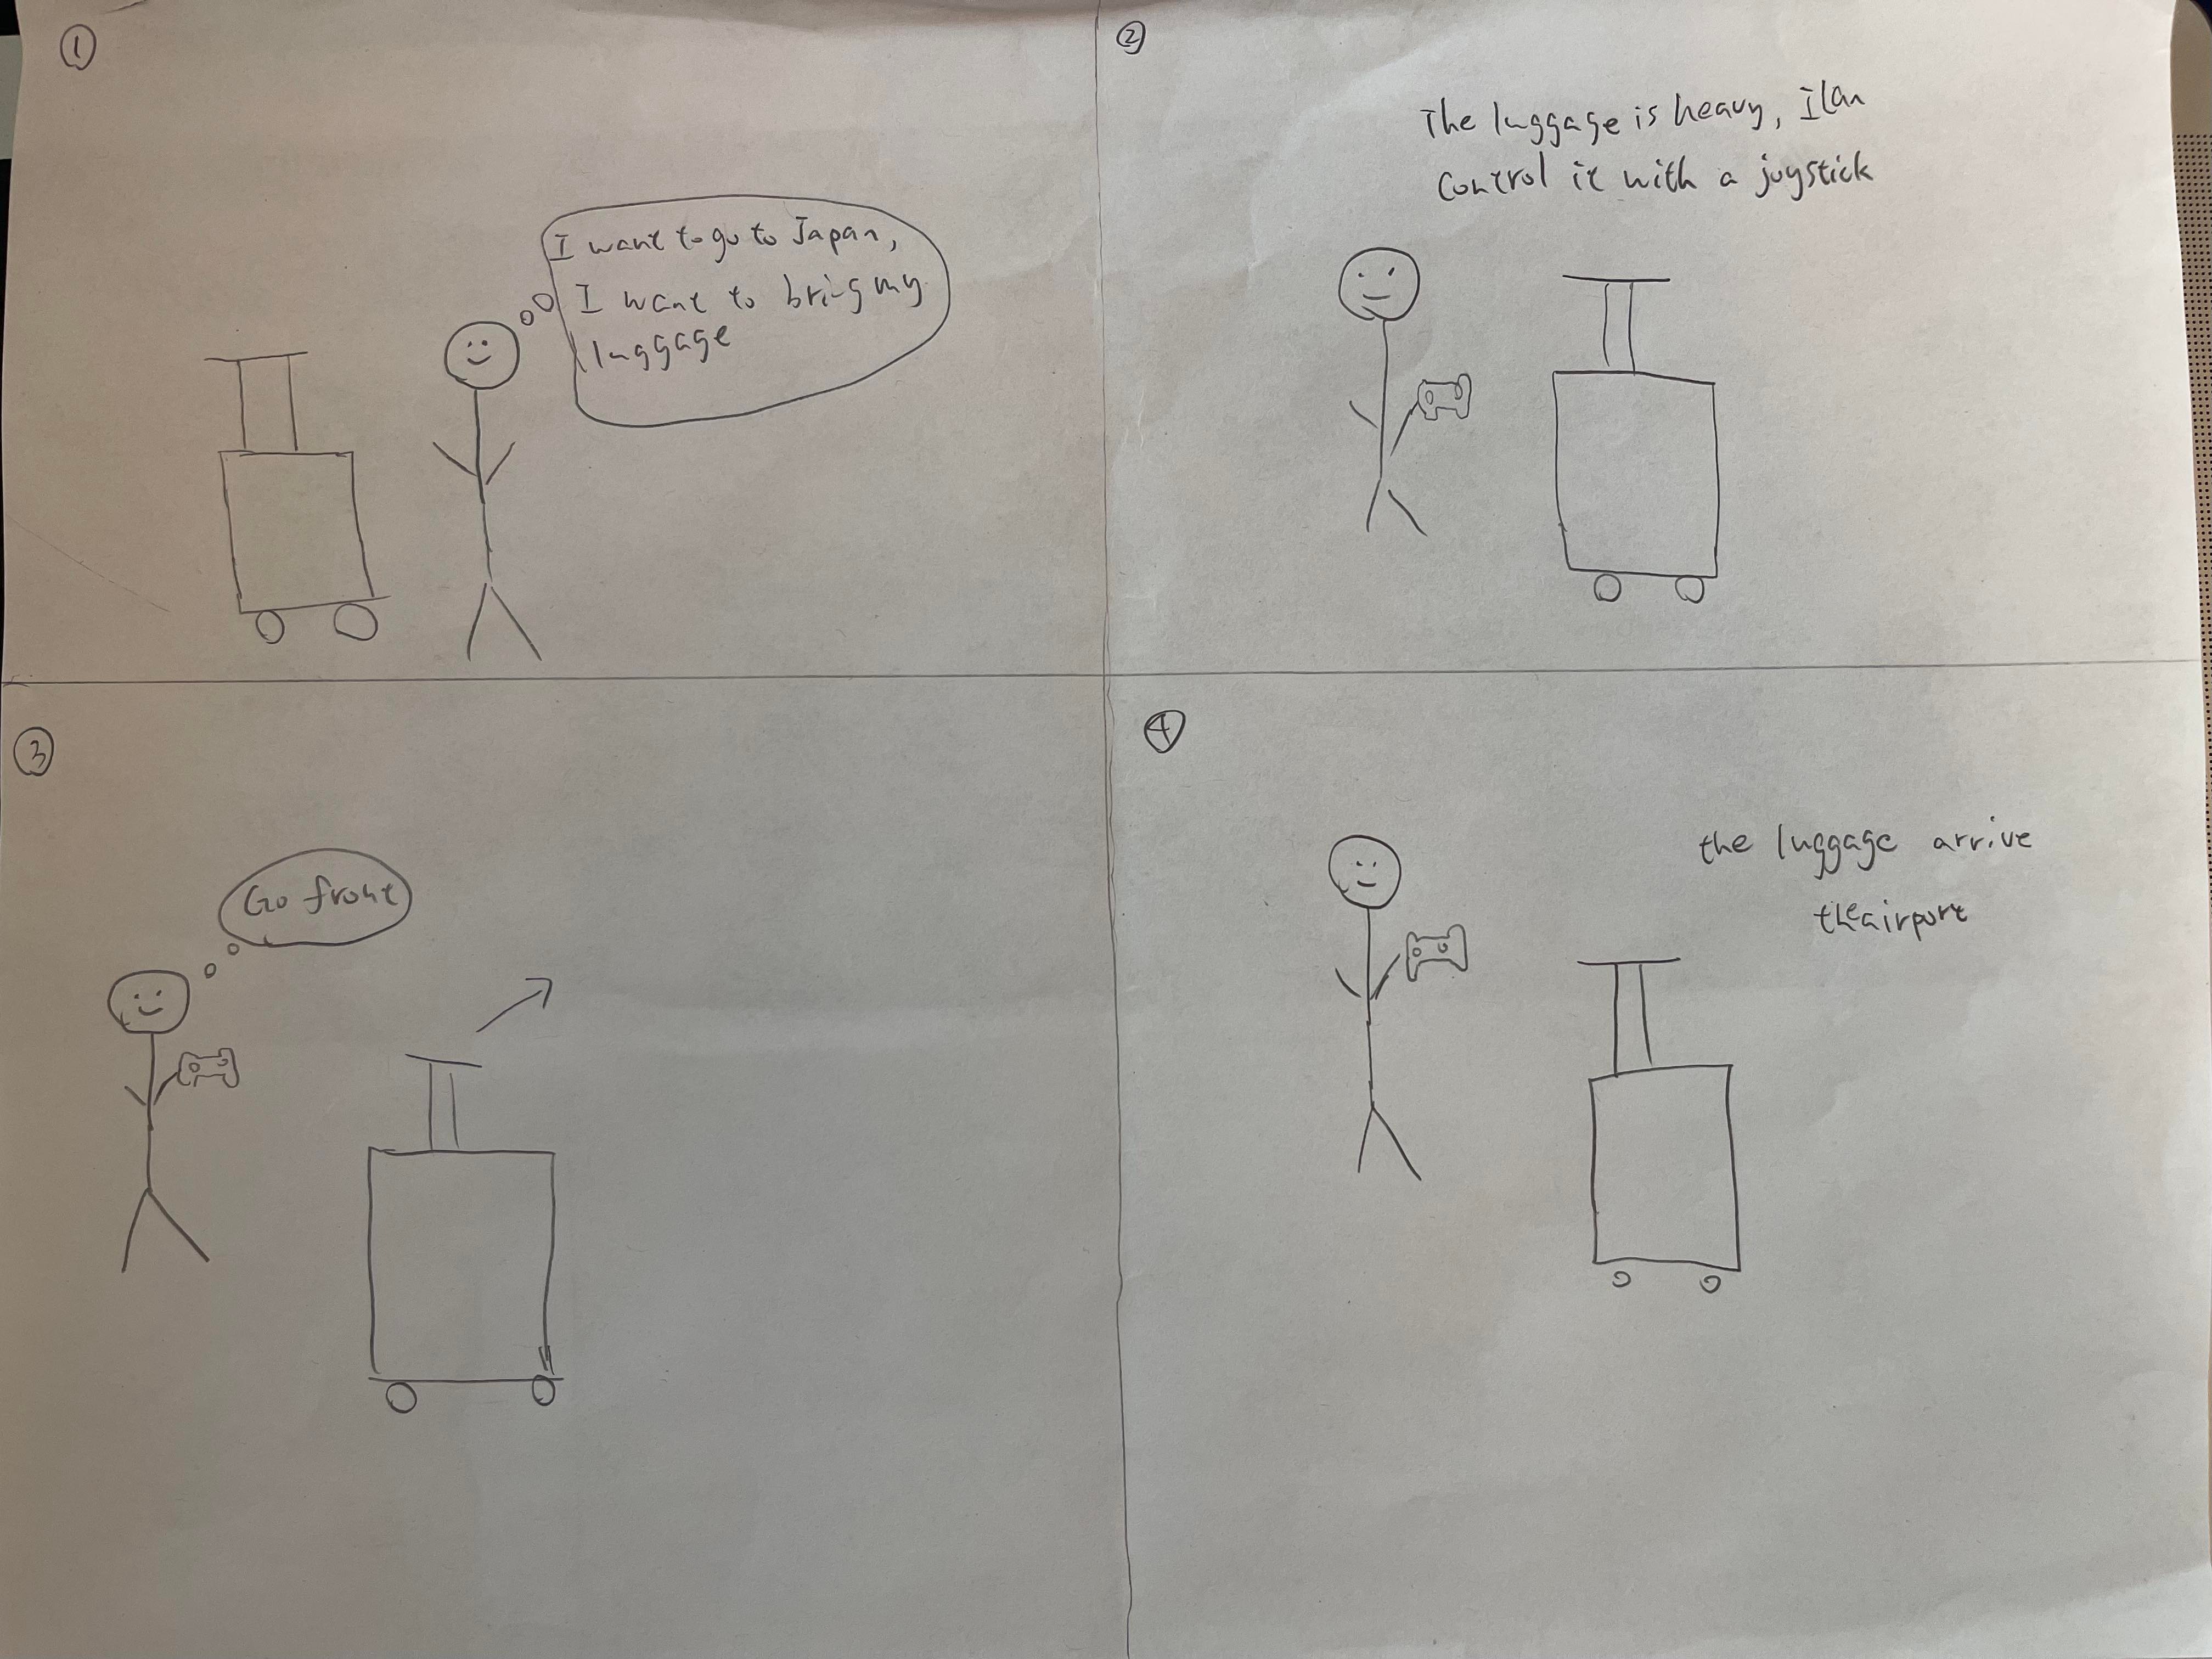 ①
I want to go to Japan,
I want to bring my
luggage
②
The luggage is heavy, I Can
Control it with a joystick
③
Go front
④
the luggage arrive
the airport